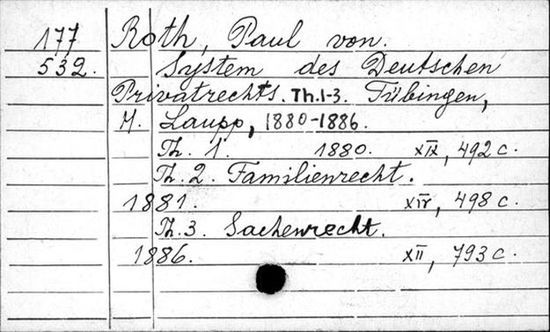 177 Roth, Paul von.
532. System des Deutschen
Privatrechts. Th.1-3. Tübingen,
H. Laupp, 1880-1886.
Th. 1. 1880. XIX, 492 c.
Th. 2. Familienrecht.
1881. XIV, 498 c.
Th. 3. Sachenrecht.
1886. XII, 793 c.